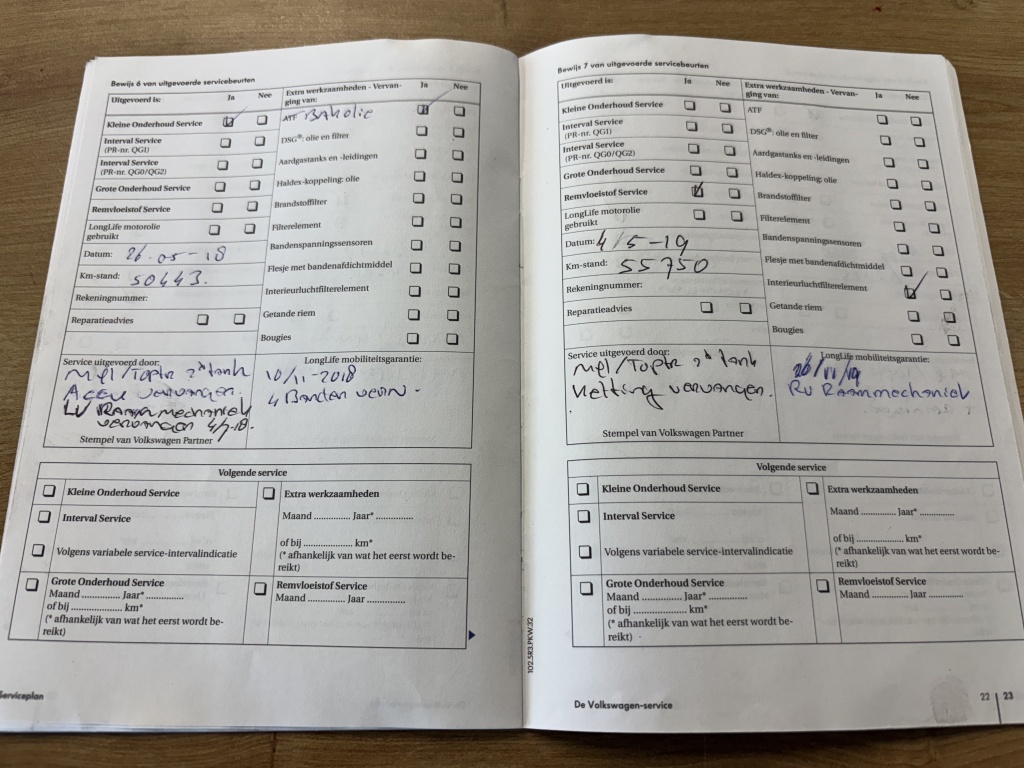 Bewijs 6 van uitgevoerde servicebeurten
Uitgevoerd is: Ja Nee
Kleine Onderhoud Service
Interval Service
(PR-nr. QG1)
Interval Service
(PR-nr. QG0/QG2)
Grote Onderhoud Service
Remvloeistof Service
LongLife motorolie
gebruikt
Datum: 26-05-18
Km-stand: 50443.
Rekeningnummer:
Reparatieadvies
Extra werkzaamheden - Vervan-
ging van: Ja Nee
ATF Bakolie
DSG®: olie en filter
Aardgastanks en -leidingen
Haldex-koppeling: olie
Brandstoffilter
Filterelement
Bandenspanningssensoren
Flesje met bandenafdichtmiddel
Interieurluchtfilterelement
Getande riem
Bougies
Service uitgevoerd door:
tank
Accu vervangen.
LV Raammechaniek
vervangen 4/7-18.
Stempel van Volkswagen Partner
LongLife mobiliteitsgarantie:
10/11-2018
4 Banden
Volgende service
Kleine Onderhoud Service
Interval Service
Volgens variabele service-intervalindicatie
Grote Onderhoud Service
Maand .............. Jaar* ..............
of bij .................... km*
(* afhankelijk van wat het eerst wordt be-
reikt)
Extra werkzaamheden
Maand .............. Jaar* ..............
of bij .................... km*
(* afhankelijk van wat het eerst wordt be-
reikt)
Remvloeistof Service
Maand .............. Jaar ..............
Serviceplan
Bewijs 7 van uitgevoerde servicebeurten
Uitgevoerd is: Ja Nee
Kleine Onderhoud Service
Interval Service
(PR-nr. QG1)
Interval Service
(PR-nr. QG0/QG2)
Grote Onderhoud Service
Remvloeistof Service
LongLife motorolie
gebruikt
Datum: 4/5-19
Km-stand: 55750
Rekeningnummer:
Reparatieadvies
Extra werkzaamheden - Vervan-
ging van: Ja Nee
ATF
DSG®: olie en filter
Aardgastanks en -leidingen
Haldex-koppeling: olie
Brandstoffilter
Filterelement
Bandenspanningssensoren
Flesje met bandenafdichtmiddel
Interieurluchtfilterelement
Getande riem
Bougies
Service uitgevoerd door:
tank
Ketting vervangen.
Stempel van Volkswagen Partner
LongLife mobiliteitsgarantie:
26/11/19
RV Raammechaniek
Volgende service
Kleine Onderhoud Service
Interval Service
Volgens variabele service-intervalindicatie
Grote Onderhoud Service
Maand .............. Jaar* ..............
of bij .................... km*
(* afhankelijk van wat het eerst wordt be-
reikt)
Extra werkzaamheden
Maand .............. Jaar* ..............
of bij .................... km*
(* afhankelijk van wat het eerst wordt be-
reikt)
Remvloeistof Service
Maand .............. Jaar ..............
102.5R3.PKW.32
De Volkswagen-service
22 | 23